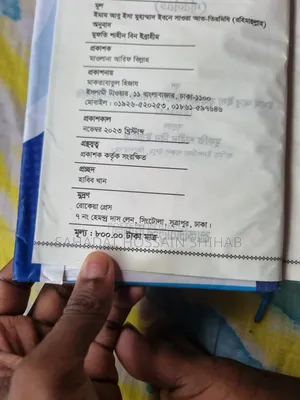 মূল
ইমাম আবু ঈসা মুহাম্মাদ ইবনে সাওরা আত-তিরমিযি (রহিমাহুল্লাহ)
অনুবাদ
মুফতি শাহীন বিন ইব্রাহীম
প্রকাশক
মাওলানা আরিফ বিল্লাহ
প্রকাশনায়
মাকতাবাতুল হিজায
ইসলামী টাওয়ার, ১১ বাংলাবাজার, ঢাকা-১১০০
মোবাইল : ০১৯২৬-৫২০২৫৩, ০১৮৬১-৫৯৭৬৪৬
প্রকাশকাল
নভেম্বর ২০২৩ খ্রিস্টাব্দ
গ্রন্থস্বত্ব
প্রকাশক কর্তৃক সংরক্ষিত
প্রচ্ছদ
হাবিব খান
মুদ্রণ
রোকেয়া প্রেস
৭ নং হেমন্দ্র দাস লেন, সিংটোলা, সূত্রাপুর, ঢাকা।
মূল্য : ৮০০.০০ টাকা মাত্র
SAHADAT HUSSAIN SHIHAB